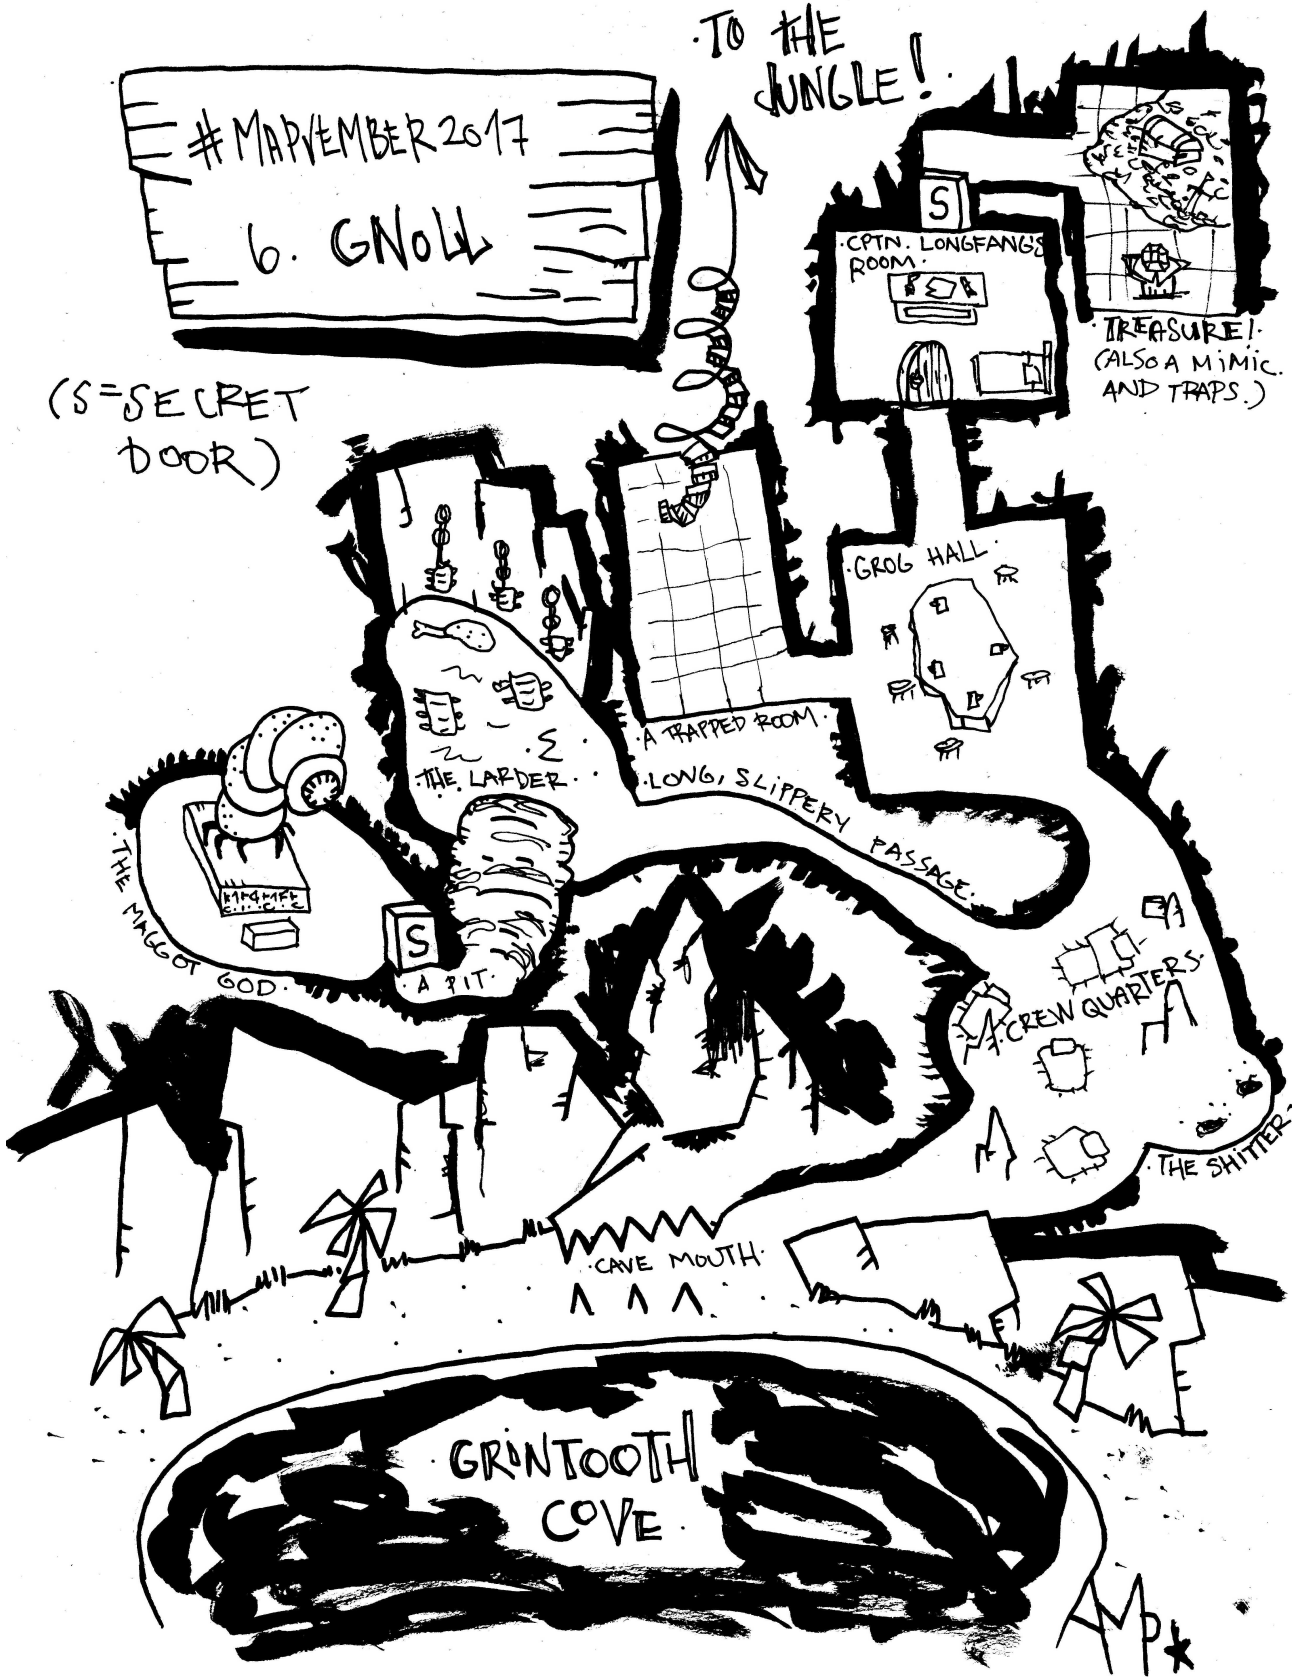 ·TO THE
JUNGLE!·
#MAPVEMBER2017
6. GNOLL
(S=SECRET
DOOR)
S
·CPTN. LONGFANG'S
ROOM·
·TREASURE!·
(ALSO A MIMIC.
AND TRAPS.)
·GROG HALL·
·A TRAPPED ROOM·
·THE LARDER·
·LONG, SLIPPERY PASSAGE·
·THE MAGGOT GOD·
S
·A PIT·
·CREW QUARTERS·
·THE SHITTER·
·CAVE MOUTH·
GRINTOOTH
COVE·
AMP*